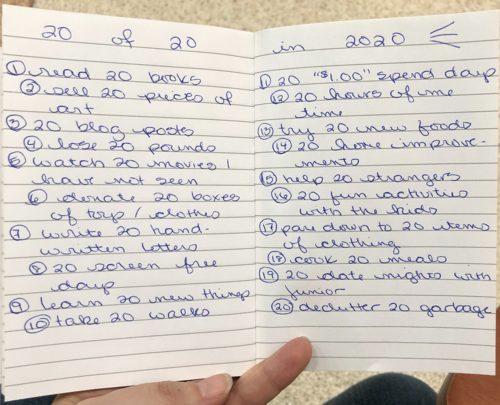 20 of 20
① read 20 books
② sell 20 pieces of
art
③ 20 blog posts
④ lose 20 pounds
⑤ watch 20 movies I
have not seen
⑥ donate 20 boxes
of toys / clothes
⑦ write 20 hand-
written letters
⑧ 20 screen free
days
⑨ learn 20 new things
⑩ take 20 walks
in 2020
⑪ 20 "$1.00" spend days
⑫ 20 hours of me
time
⑬ try 20 new foods
⑭ 20 home improve-
ments
⑮ help 20 strangers
⑯ 20 fun activities
with the kids
⑰ pare down to 20 items
of clothing
⑱ cook 20 meals
⑲ 20 date nights with
junior
⑳ declutter 20 garbage